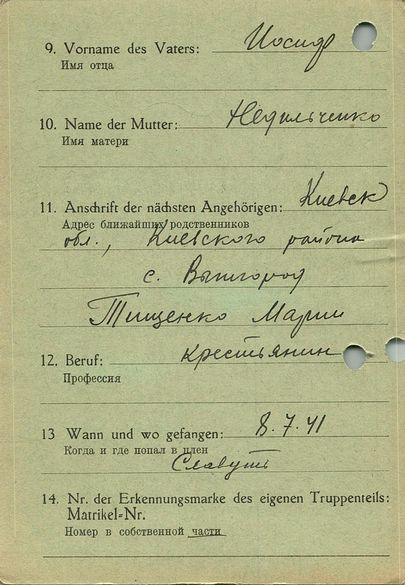 9. Vorname des Vaters: Иосиф
Имя отца
10. Name der Mutter: Недильченко
Имя матери
11. Anschrift der nächsten Angehörigen: Киевск
Адрес ближайших родственников
обл., Киевского района
с. Вышгород
Тищенко Марии
12. Beruf: крестьянин
Профессия
13 Wann und wo gefangen: 8.7.41
Когда и где попал в плен
14. Nr. der Erkennungsmarke des eigenen Truppenteils:
Matrikel-Nr.
Номер в собственной части